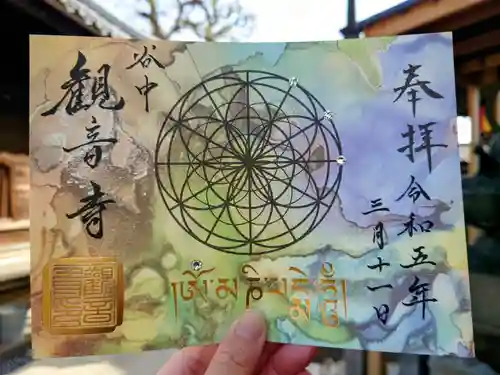 奉拝
令和五年
三月十一日
谷中
観音寺